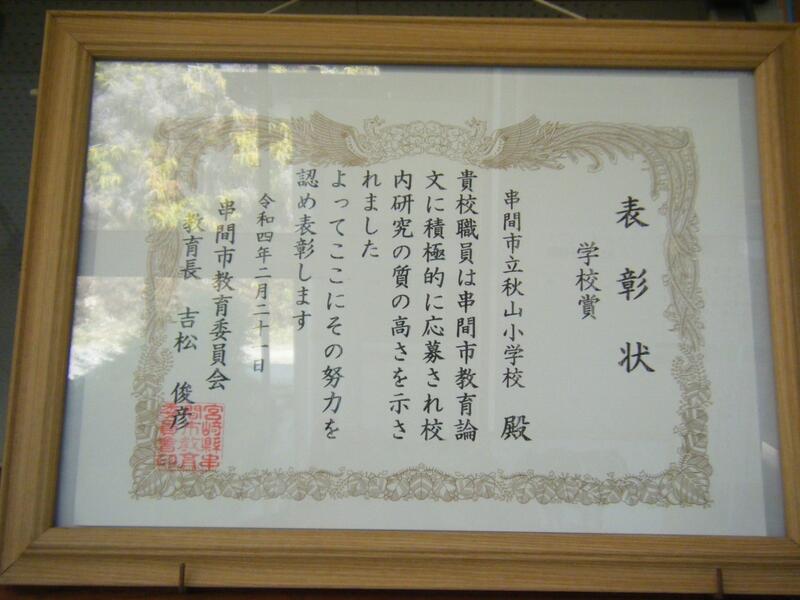 表彰状
学校賞
串間市立秋山小学校 殿
貴校職員は串間市教育論
文に積極的に応募され校
内研究の質の高さを示さ
れました
よってここにその努力を
認め表彰します
令和四年二月二十一日
串間市教育委員会
教育長 吉松 俊彦
宮崎縣串
間市教育
委員會印